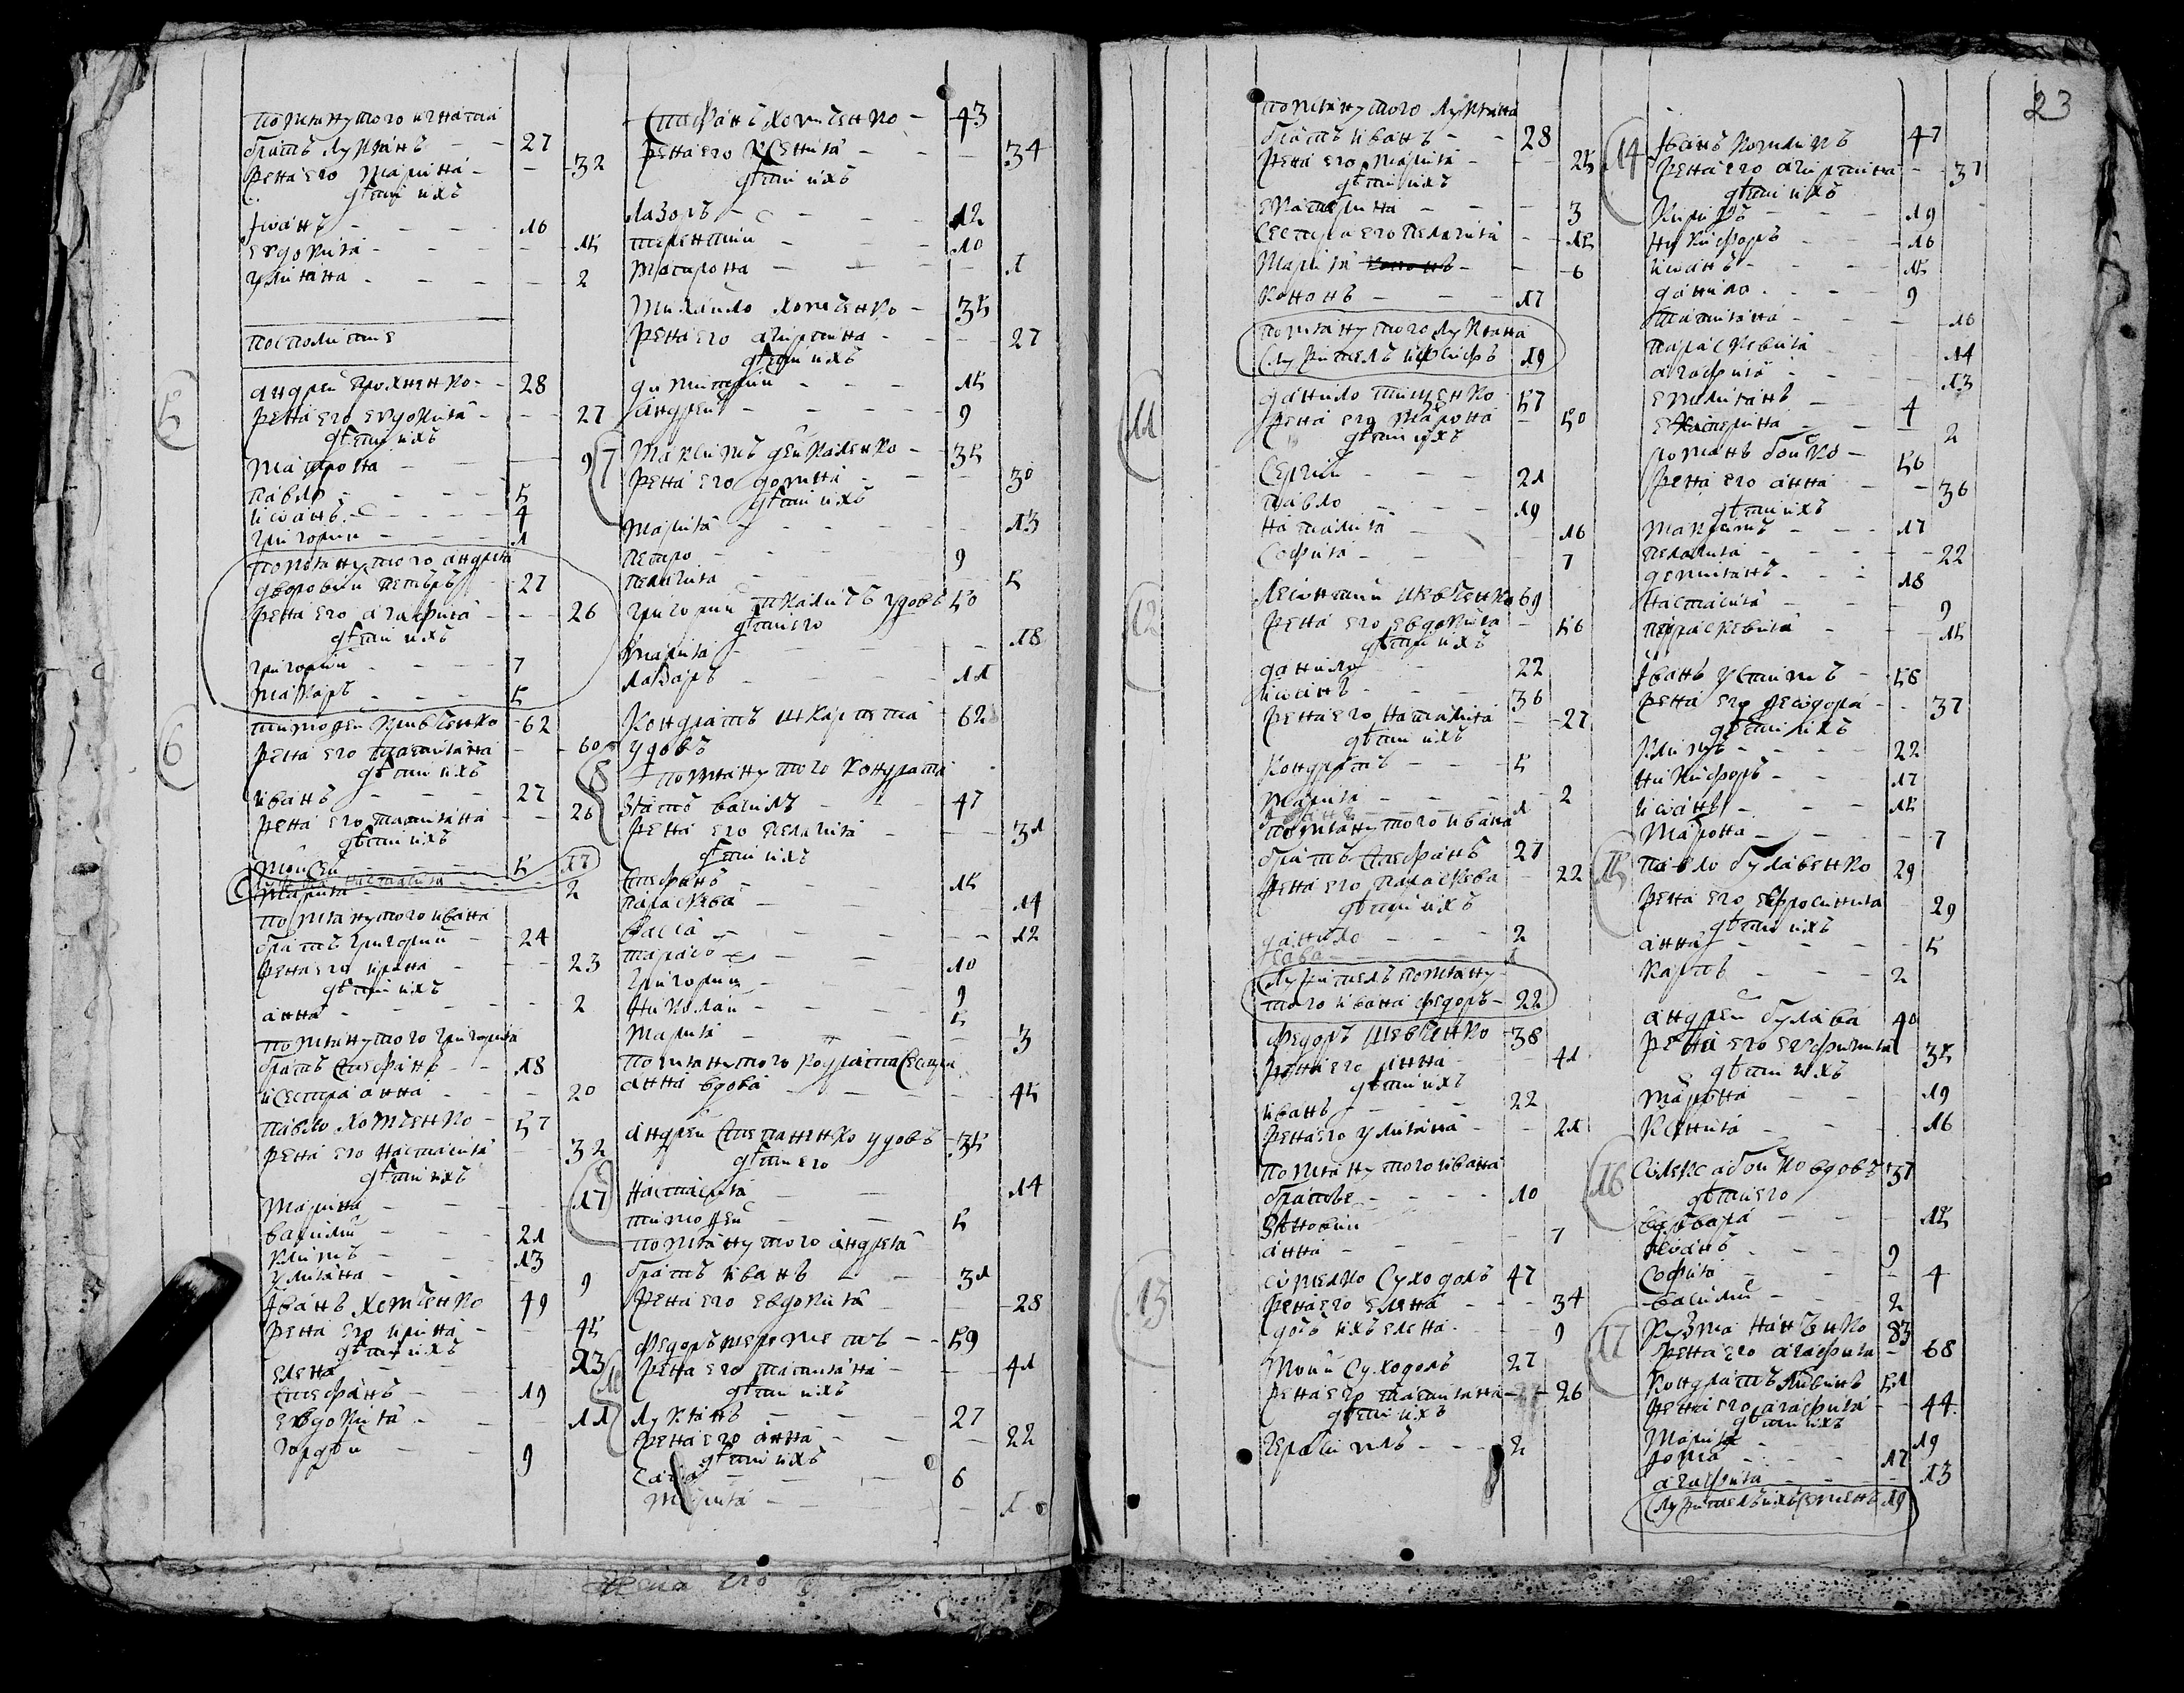 помянутого игната
братъ лукянъ - - 27
жена его марина - - 32
дѣти ихъ
иванъ - - - - 16
евдокия - - - - 15
улияна - - - - 2
посполитие
5
андрей - 28
жена его евдокия - - - 27
дѣти ихъ
матрона - - 9
павло - - - - 5
иоанъ - - - - 4
григорий - - 1
помянутого андрея
дворовий петръ - 27
жена его агафия - - - 26
дѣти ихъ
григорий - - - 7
макаръ - - - 5
6
тимофей кривченко 62
жена его татияна - - 60
дѣти ихъ
иванъ - - - 27
жена его татияна - - 26
дѣти ихъ
моисей - - - 5
настасия - - 17
марина - - - 2
помянутого ивана
братъ григорий - 24
жена его ирина - - - 23
дѣти ихъ
анна - - - - 2
помянутого григория
братъ стефанъ - - 18
и сестра анна - - - 20
павло хомченко - 57
жена его настасия - - 32
дѣти ихъ
марина - - - - 17
василий - - - 21
климъ - - - 13
улияна - - - 9
иванъ хомченко 49
жена его ирина - - 45
дѣти ихъ
елена - - - 23
стефанъ - - 19
евдокия - - - 11
гордѣй - - 9
стефанъ хомченко - 43
жена его ксения - - - 34
дѣти ихъ
лазоръ - - - - 12
терентий - - - 10
матрона - - - - 1
михайло хомченко - 35
жена его агripина - - - 27
дѣти ихъ
димитрий - - - 15
андрей - - - - 9
7
максимъ - 35
жена его домна - - - 30
дѣти ихъ
мария - - - - 13
петро - - - 9
пелагия - - - - 5
григорий ткаличъ удовъ 50
дѣти его
мария - - - - 18
лазаръ - - - 11
кондратъ шкарпета 62
удовъ
8
помянутого кондрата
зять василь - - 47
жена его пелагия - - - 31
дѣти ихъ
стефанъ - - - 15
параскева - - - 14
васса - - - - 12
тарасъ - - -
григорий - - - 10
николай - - - 9
мария - - - 3
помянутого кодрата сестра
анна вдова - - - - 45
андрей степаненко удовъ - 35
дѣти его
9
настасия - - 14
тимофей - - 5
помянутого андрея
братъ иванъ - - 31
жена его евдокия - - 28
федоръ шереметъ - - 59
10
жена его татияна - - 41
дѣти ихъ
лукянъ - - - 27
жена его анна - - - 22
дѣти ихъ
сава - - - 6
мария - - - - 1
23
помянутого лукяна
братъ иванъ - - 28
жена его мария - - - 25
дѣти ихъ
екатерина - - - 3
сестра его пелагия - - 15
мария - - 6
кононъ - - - 17
помянутого лукяна
служитель иосифъ 19
11
данило тищенко 57
жена его мавона - 50
дѣти ихъ
сергий - - 21
павло - - - 19
наталия - - 16
софия - - - 7
12
леонтий ивченко 69
жена его евдокия - 56
дѣти ихъ
данило - - 22
иоанъ - - - 36
жена его наталия - - 27
дѣти ихъ
кондратъ - - - 5
мария - - - - 2
помянутого ивана
братъ стефанъ 27
жена его параскева - 22
дѣти ихъ
данило - - - 2
сава - - - 1
служитель помяну-
того ивана федоръ - 22
федоръ шевченко - 38
жена его анна - 41
дѣти ихъ
иванъ - - - - 22
жена его улияна - - 21
помянутого ивана
братове - - - - 10
зѣновий
анна - - - - 7
13
омелко суходолъ 47
жена его елена - - - 34
дочь ихъ елена - - - 9
мойсй суходолъ 27
жена его татияна - - 26
дѣти ихъ
герасимъ - - - 2
14
иванъ 47
жена его агрипина - - 37
дѣти ихъ
19
никифоръ - - - 16
иоанъ - - - 15
данило - - - 9
татияна - - - - 16
параскевия - - 14
агафия - - - - 13
емилиянъ - 4
екатерина - - - 2
романъ бойко - 56
жена его анна - - - 36
дѣти ихъ
максимъ - - - 17
пелагия - - - - - 22
демиянъ - - - 18
настасия - - - 9
параскевия - - - 15
иванъ - 58
жена его феодора - - 37
дѣти ихъ
климъ - - - - 22
никифоръ - - - 17
иоанъ - - - 15
мавона - - - - - 7
15
павло булавенко 29
жена его ефросиния - 29
дѣти ихъ
анна - - - - - 5
карпъ - - - 2
андрей булава 40
жена его евфимия 35
дѣти ихъ
мавона - - - 19
ксения - - - - 16
16
олекса бойко вдовъ 57
дѣти его
варвара - - - 15
иоанъ - - - 9
софия - - - - 4
василий - - - 2
17
кузма 83
жена его агафия - 68
кондратъ 51
жена его агафия - - 44
дѣти ихъ
мария - - - 19
фома - - - 17
агафия - - - - 13
служитель ихъ семенъ 19